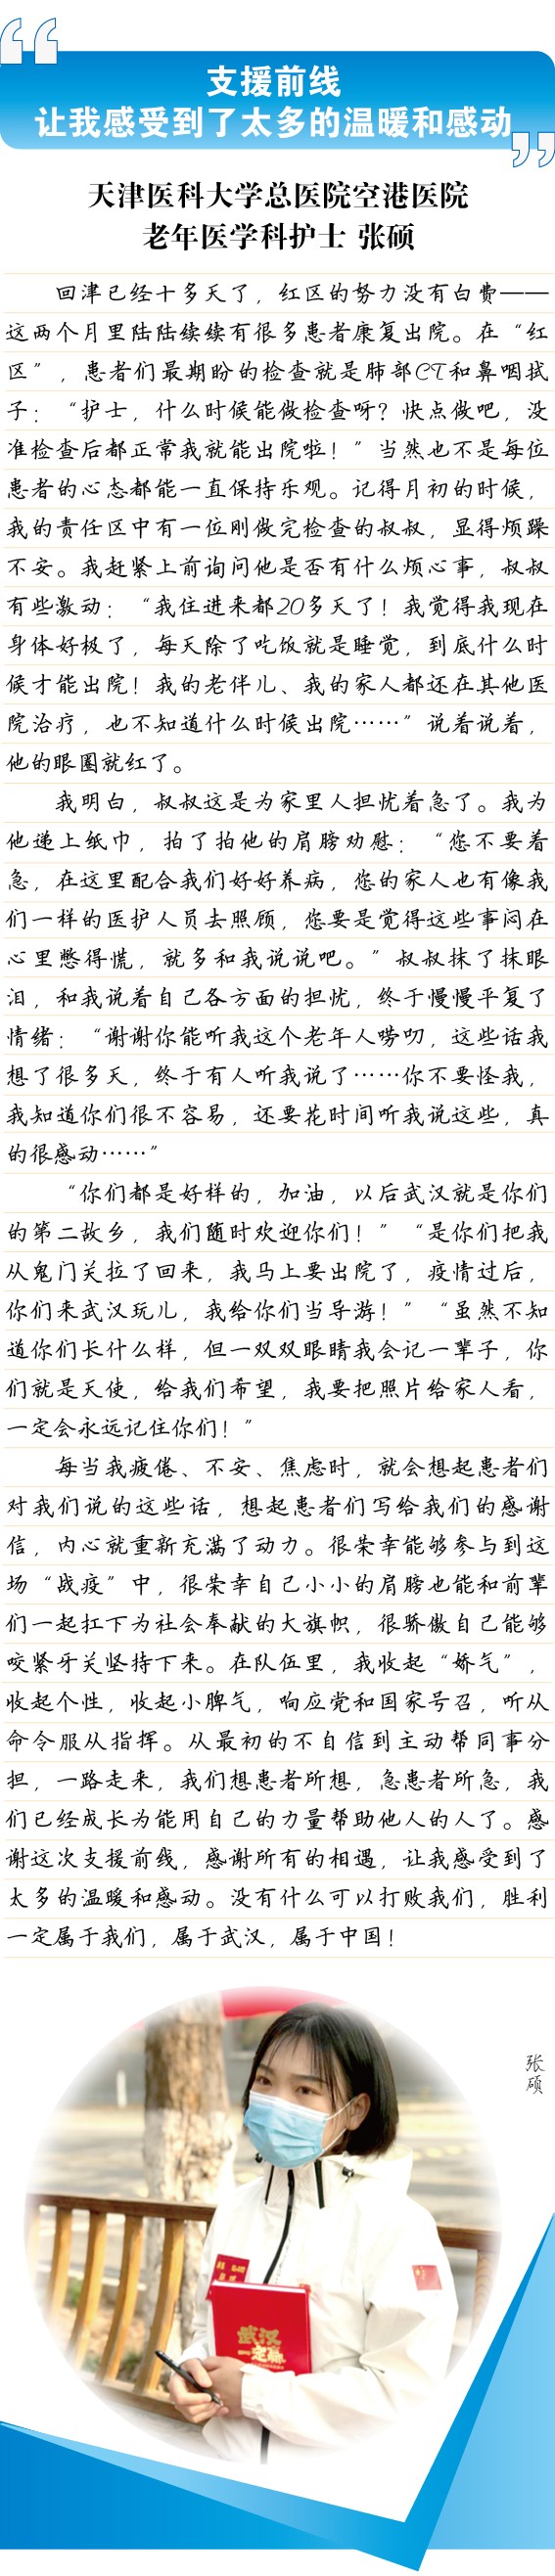 支援前线
让我感受到了太多的温暖和感动
天津医科大学总医院空港医院
老年医学科护士 张硕
回津已经十多天了，红区的努力没有白费——
这两个月里陆陆续续有很多患者康复出院。在“红
区”，患者们最期盼的检查就是肺部CT和鼻咽拭
子：“护士，什么时候能做检查呀？快点做吧，没
准检查后都正常我就能出院啦！”当然也不是每位
患者的心态都能一直保持乐观。记得月初的时候，
我的责任区中有一位刚做完检查的叔叔，显得烦躁
不安。我赶紧上前询问他是否有什么烦心事，叔叔
有些激动：“我住进来都20多天了！我觉得我现在
身体好极了，每天除了吃饭就是睡觉，到底什么时
候才能出院！我的老伴儿、我的家人都还在其他医
院治疗，也不知道什么时候出院……”说着说着，
他的眼圈就红了。
我明白，叔叔这是为家里人担忧着急了。我为
他递上纸巾，拍了拍他的肩膀劝慰：“您不要着
急，在这里配合我们好好养病，您的家人也有像我
们一样的医护人员去照顾，您要是觉得这些事闷在
心里憋得慌，就多和我说说吧。”叔叔抹了抹眼
泪，和我说着自己各方面的担忧，终于慢慢平复了
情绪：“谢谢你能听我这个老年人唠叨，这些话我
想了很多天，终于有人听我说了……你不要怪我，
我知道你们很不容易，还要花时间听我说这些，真
的很感动……”
“你们都是好样的，加油，以后武汉就是你们
的第二故乡，我们随时欢迎你们！”“是你们把我
从鬼门关拉了回来，我马上要出院了，疫情过后，
你们来武汉玩儿，我给你们当导游！”“虽然不知
道你们长什么样，但一双双眼睛我会记一辈子，你
们就是天使，给我们希望，我要把照片给家人看，
一定会永远记住你们！”
每当我疲倦、不安、焦虑时，就会想起患者们
对我们说的这些话，想起患者们写给我们的感谢
信，内心就重新充满了动力。很荣幸能够参与到这
场“战疫”中，很荣幸自己小小的肩膀也能和前辈
们一起扛下为社会奉献的大旗帜，很骄傲自己能够
咬紧牙关坚持下来。在队伍里，我收起“娇气”，
收起个性，收起小脾气，响应党和国家号召，听从
命令服从指挥。从最初的不自信到主动帮同事分
担，一路走来，我们想患者所想，急患者所急，我
们已经成长为能用自己的力量帮助他人的人了。感
谢这次支援前线，感谢所有的相遇，让我感受到了
太多的温暖和感动。没有什么可以打败我们，胜利
一定属于我们，属于武汉，属于中国！
张硕
武汉
一定赢